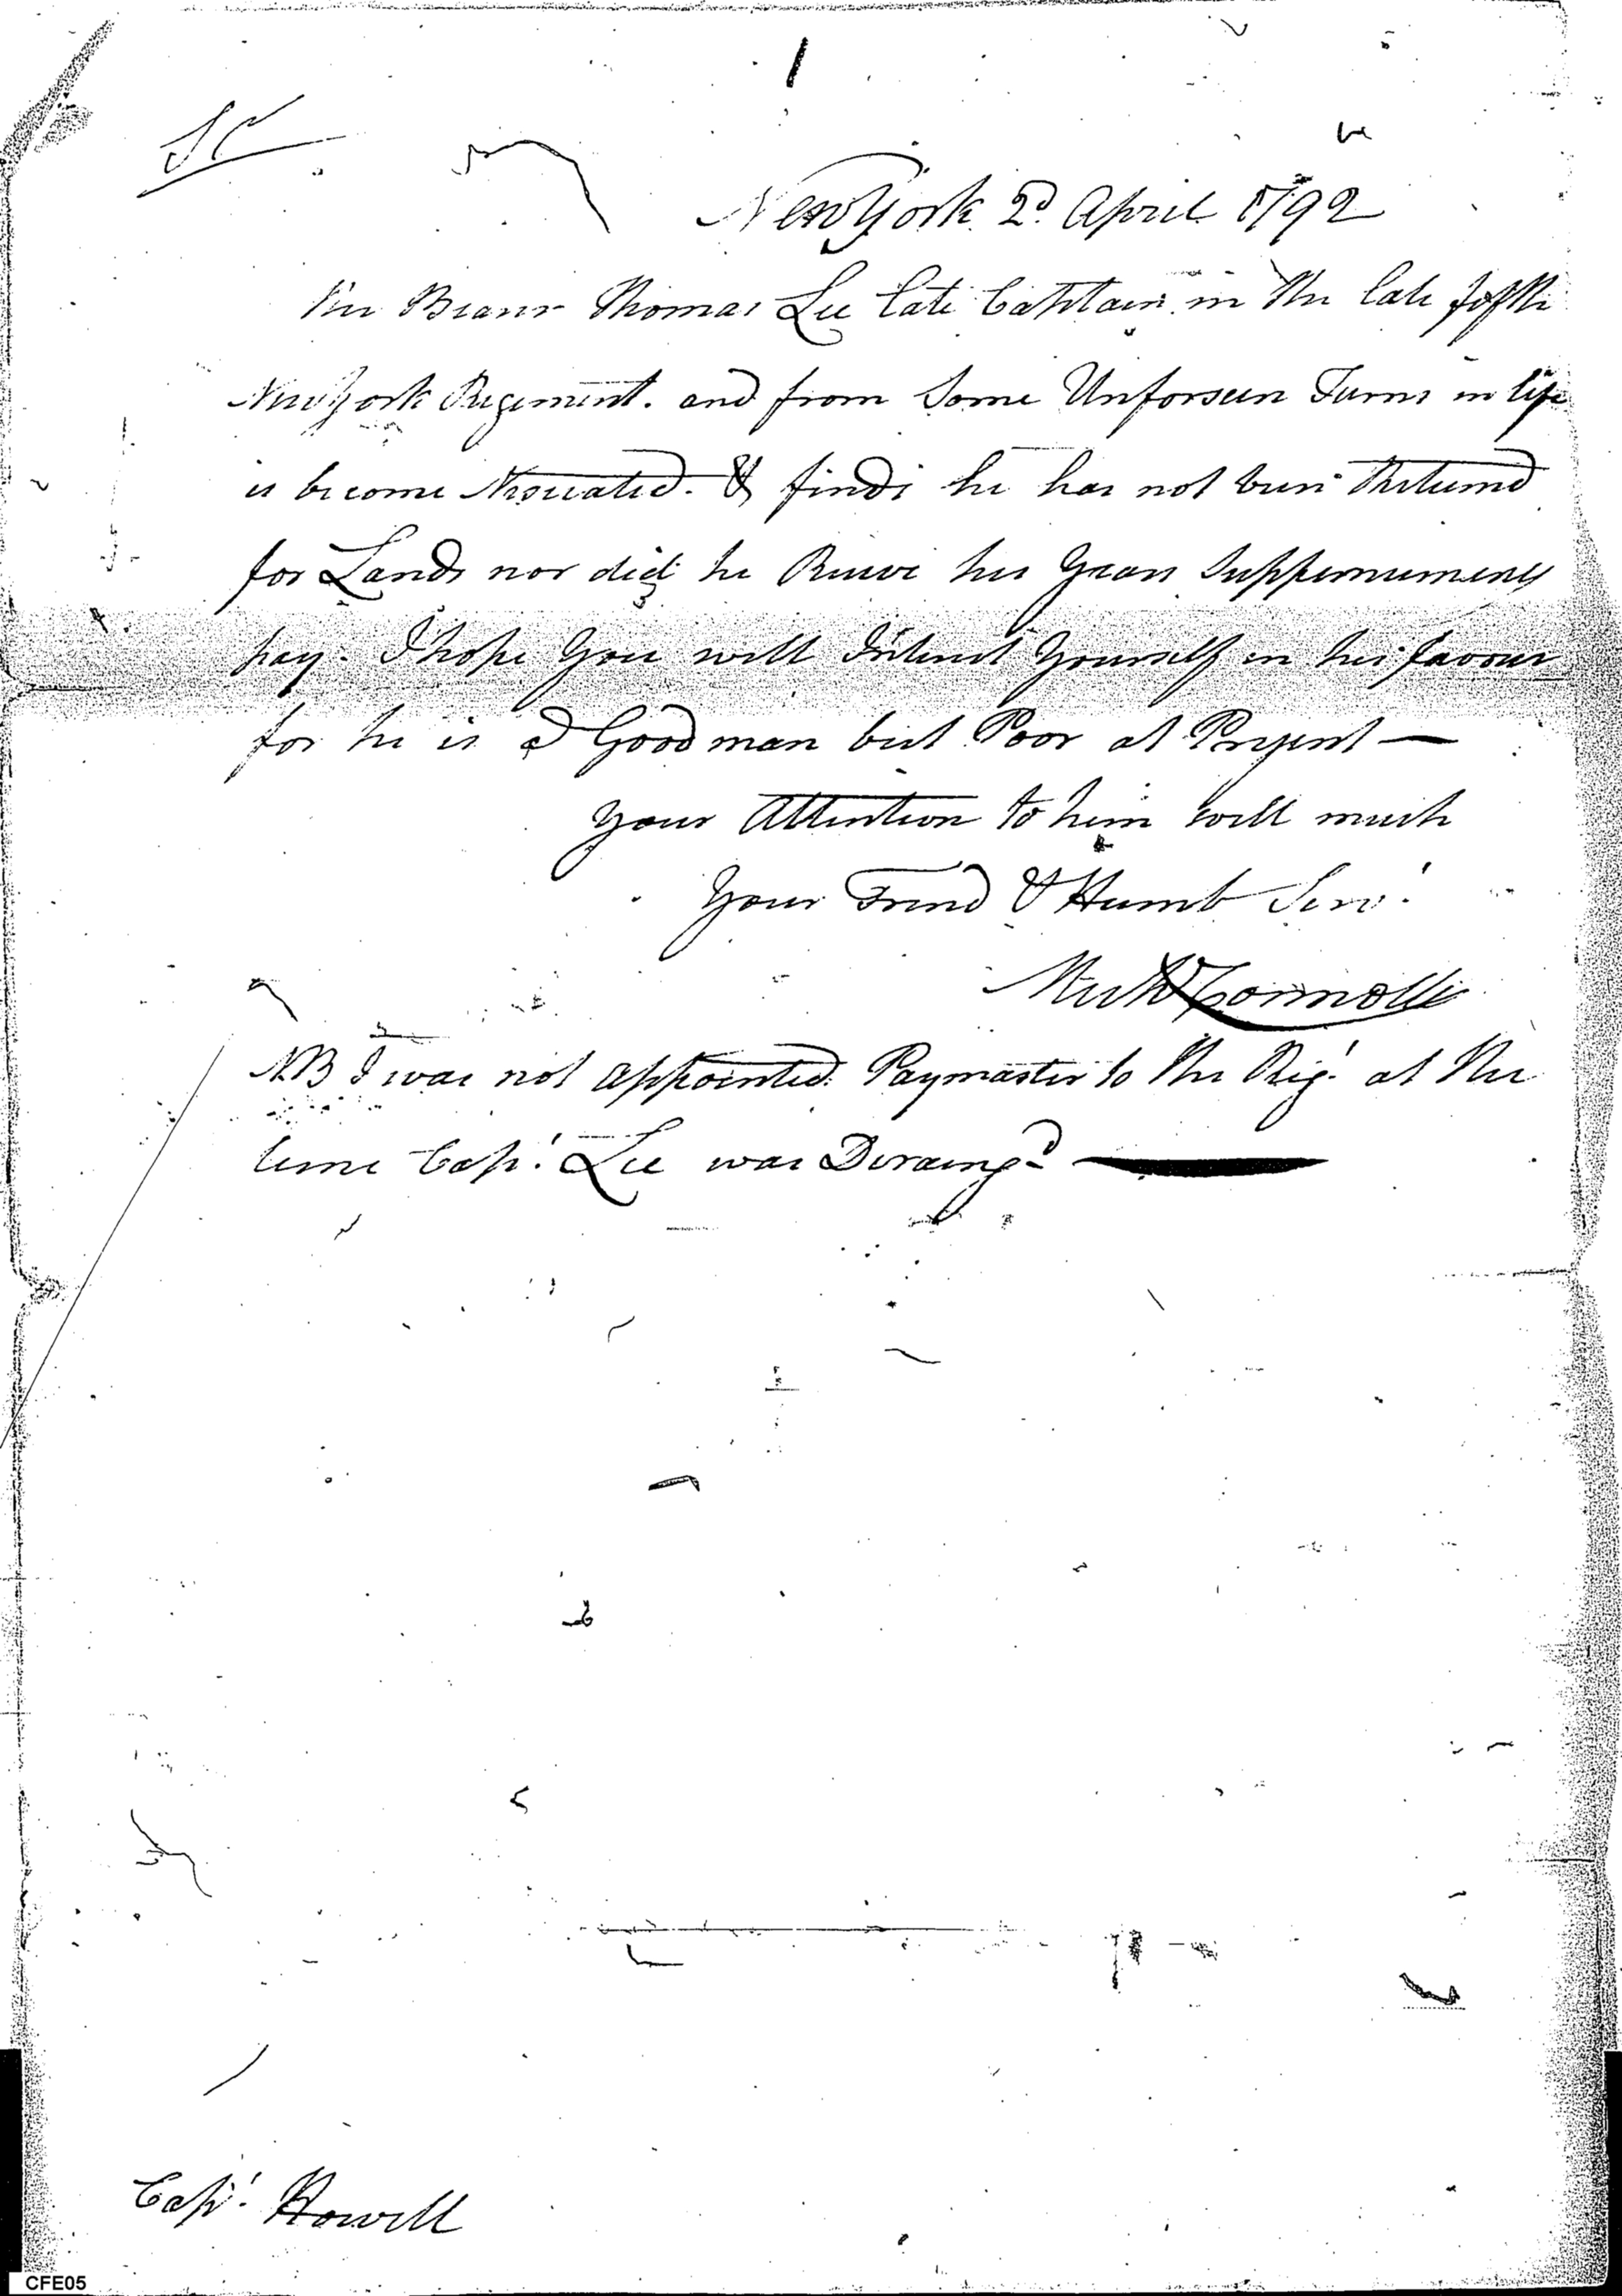 Sr
New York 2d April 1792
The Bearer Thomas Lee late Captain in the late fifth
New York Regiment. and from Some Unforseen Turns in life
is become Necessiated. & finds he has not been Returned
for Lands nor did he Receive his Years Suppernumery
pay. I hope You will Interest Yourself in his favour
for he is a Good man but Poor at Present —
Your Attention to him will much
Your Friend & Humb Servt
Michl Connolly
NB I was not appointed Paymaster to the Regt at the
time Capt Lee was Deraingd
Capt Howell
CFE05